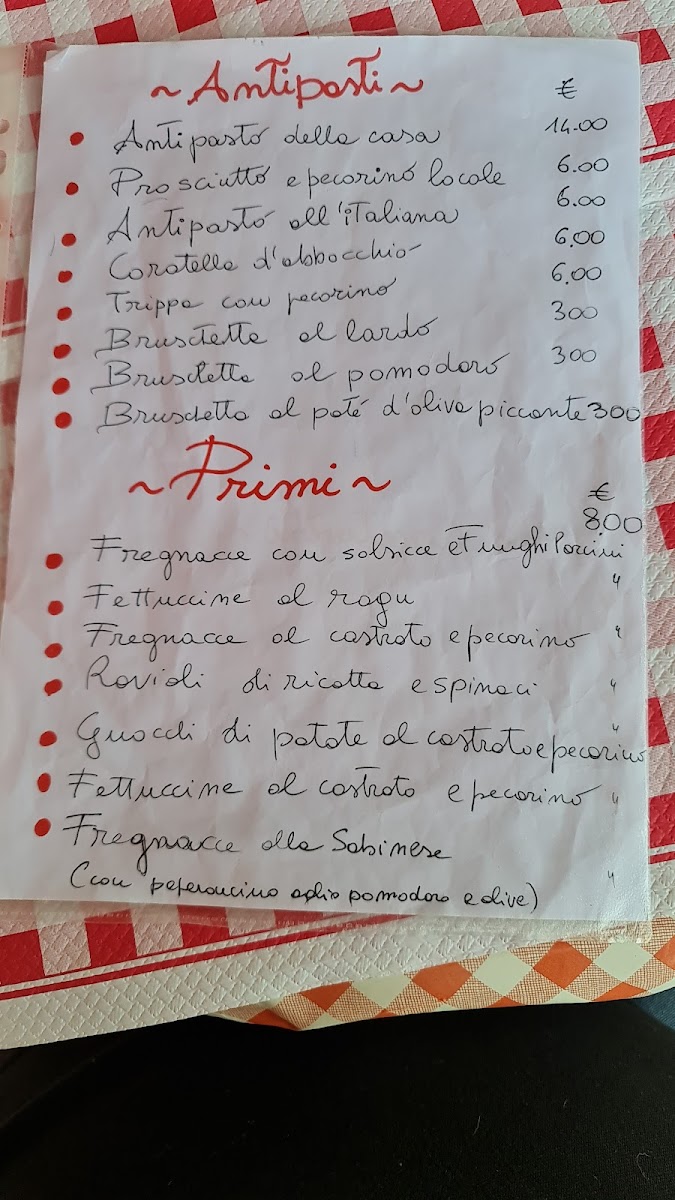 ~Antipasti~ €
Antipasto della casa 14.00
Prosciutto e pecorino locale 6.00
Antipasto all'italiana 6.00
Coratella d'abbacchio 6.00
Trippa con pecorino 6.00
Bruschetta al lardo 300
Bruschetta al pomodoro 300
Bruschetta al paté d'oliva piccante 300
~Primi~ €
800
Fregnacce con salsicce e Funghi Porcini
Fettuccine al ragu "
Fregnacce al castrato e pecorino "
Ravioli di ricotta e spinaci "
Gnocchi di patate al castrato e pecorino "
Fettuccine al castrato e pecorino "
Fregnacce alla Sabinese
(con peperoncino aglio pomodoro e olive) "